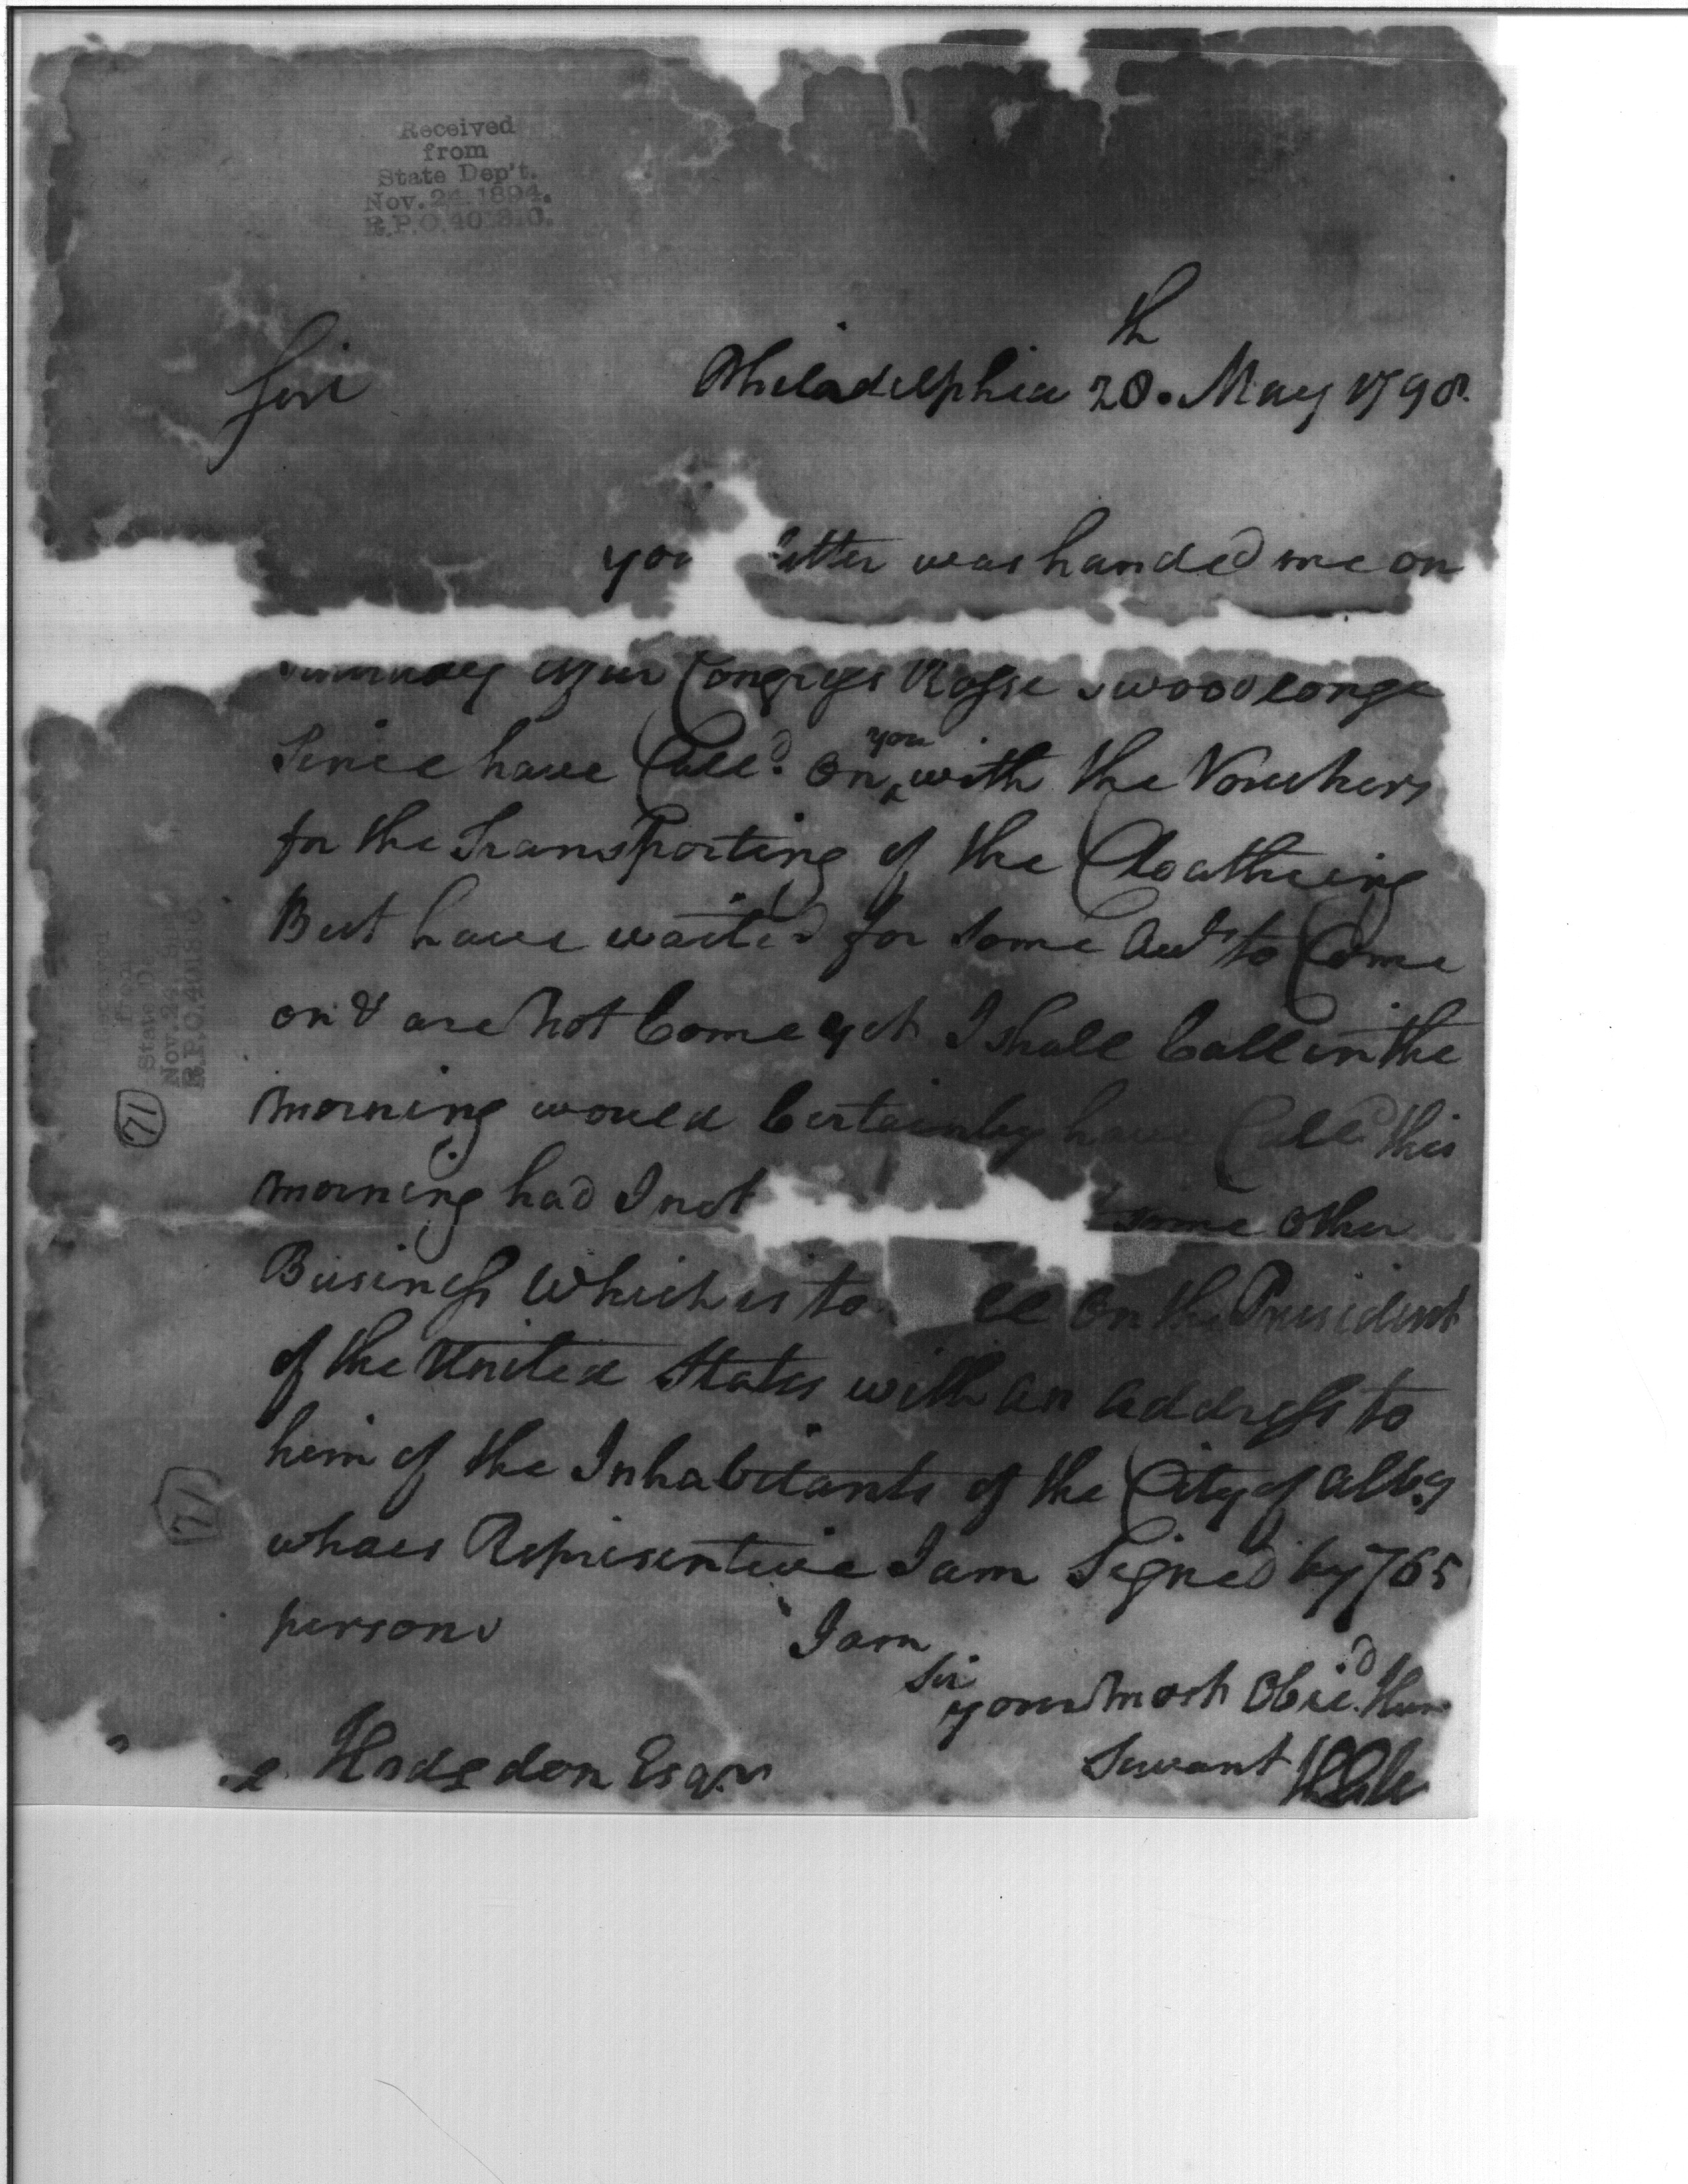 Received
from
State Dep't.
Nov. 24 1894.
R.P.O. 401510.
Sir
Philadelphia 28th May 1798.
you etter was handed me on
after Congress Rosse I wood longe
Since have Call'd on you with the Vouchers
for the Transporting of the Cloatheing
But have waited for some to Come
on & are Not Come yet I shall Call in the
morning would Certainly have Call'd this
morning had I not some other
Business Which is to ll on the President
of the United States with an address to
him of the Inhabitants of the City of Alby
whaes Representive I am Signed by 765
persons I am
Sir
your most Obied Hum
Servant
Hodgdon Esqr
State D
Nov. 24
R.P.O. 401
71
71